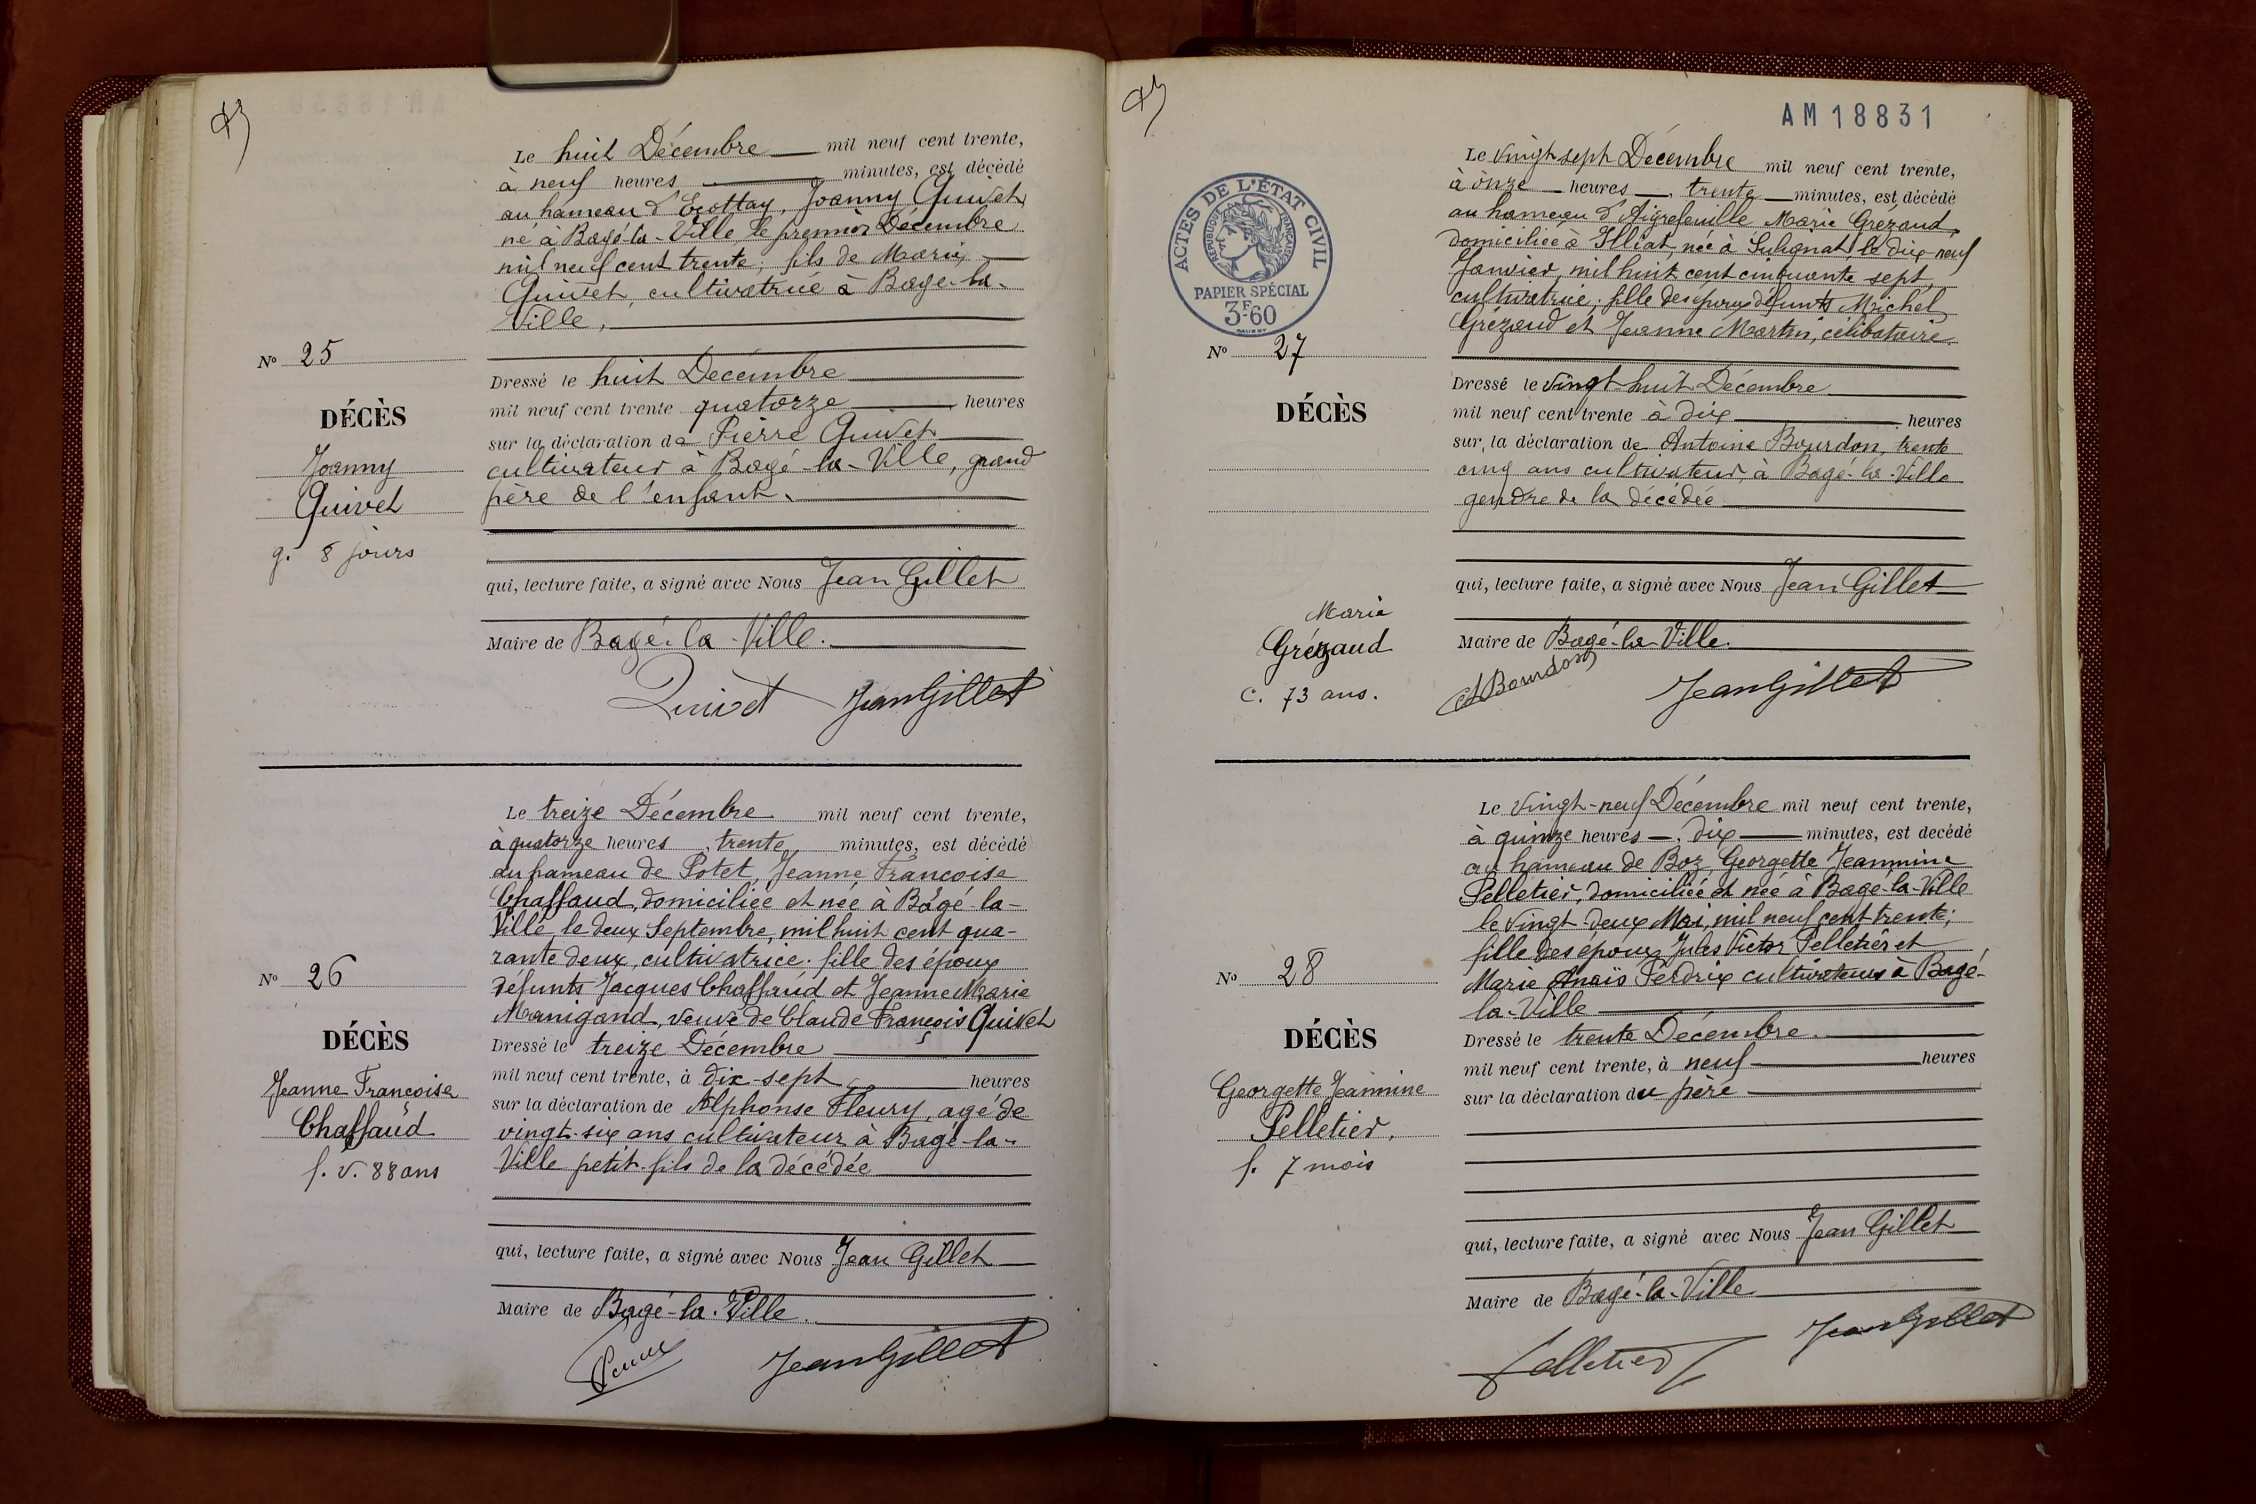 Le huit Décembre mil neuf cent trente,
à neuf heures minutes, est décédé
au hameau d'Ecottay, Joanny Quivet
né à Bagé-la-Ville le premier Décembre
mil neuf cent trente, fils de Marie
Quivet, cultivatrice à Bagé-la-
Ville,
No 25
DÉCÈS
Joanny
Quivet
g. 8 jours
Dressé le huit Décembre
mil neuf cent trente quatorze heures
sur la déclaration de Pierre Quivet
cultivateur à Bagé-la-Ville, grand
père de l'enfant.
qui, lecture faite, a signé avec Nous Jean Gillet
Maire de Bagé-la-Ville.
Quivet JeanGillet
Le treize Décembre mil neuf cent trente,
à quatorze heures trente minutes, est décédé
au hameau de Potet, Jeanne Françoise
Chaffaud, domiciliée et née à Bâgé-la-
Ville, le deux Septembre, mil huit cent qua-
rante deux, cultivatrice. fille des époux
défunts Jacques Chaffaud et Jeanne Marie
Manigand, veuve de Claude François Quivet
No 26
DÉCÈS
Jeanne Françoise
Chaffaud
f. v. 88 ans
Dressé le treize Décembre
mil neuf cent trente, à dix-sept heures
sur la déclaration de Alphonse Fleury, agé de
vingt-six ans cultivateur à Bagé-la-
Ville petit-fils de la décédée
qui, lecture faite, a signé avec Nous Jean Gillet
Maire de Bagé-la-Ville.
JeanGillet
AM 18831
ACTES DE L'ÉTAT CIVIL
RÉPUBLIQUE FRANÇAISE
PAPIER SPÉCIAL
3F60
Le vingt sept Décembre mil neuf cent trente,
à onze heures trente minutes, est décédé
au hameau d'Aigrefeuille Marie Grézaud,
domiciliée à Illiat, née à Sulignat, le dix-neuf
Janvier, mil huit cent cinquante sept,
cultivatrice; fille des époux défunts Michel
Grézaud et Jeanne Martin, célibataire.
No 27
DÉCÈS
Marie
Grézaud
c. 73 ans.
Dressé le vingt huit Décembre
mil neuf cent trente à dix heures
sur la déclaration de Antoine Bourdon, trente
cinq ans cultivateur, à Bagé-la-Ville
gendre de la décédée
qui, lecture faite, a signé avec Nous Jean Gillet
Maire de Bagé-la-Ville.
A Bourdon JeanGillet
Le vingt-neuf Décembre mil neuf cent trente,
à quinze heures dix minutes, est décédé
au hameau de Boz, Georgette Jeannine
Pelletier, domiciliée et née à Bagé-la-Ville
le vingt-deux Mai, mil neuf cent trente;
fille des époux Jules Victor Pelletier et
Marie Anaïs Perdrix cultivateurs à Bagé-
la-Ville
No 28
DÉCÈS
Georgette Jeannine
Pelletier.
f. 7 mois
Dressé le trente Décembre.
mil neuf cent trente, à neuf heures
sur la déclaration du père
qui, lecture faite, a signé avec Nous Jean Gillet
Maire de Bagé-la-Ville
Pelletier JeanGillet